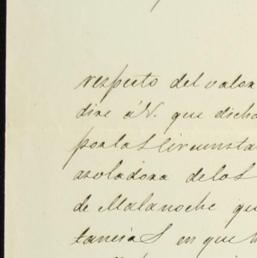 respecto del valor
dire á V. que dicho
por las circunsta
asoladora de los
de Malanoche qu
tancias en que